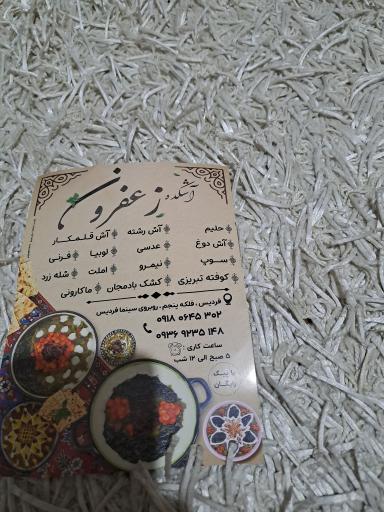 آشکده زعفرون
حلیم
آش رشته
آش قلمکار
آش دوغ
عدسی
لوبیا
فرنی
سوپ
نیمرو
املت
شله زرد
کوفته تبریزی
کشک بادمجان
ماکارونی
فردیس ، فلکه پنجم ، روبروی سینما فردیس
۰۹۱۸ ۰۶۴۵ ۳۰۲
۰۹۳۶ ۹۲۳۵ ۱۴۸
ساعت کاری :
۵ صبح الی ۱۲ شب
با پیک
رایگان